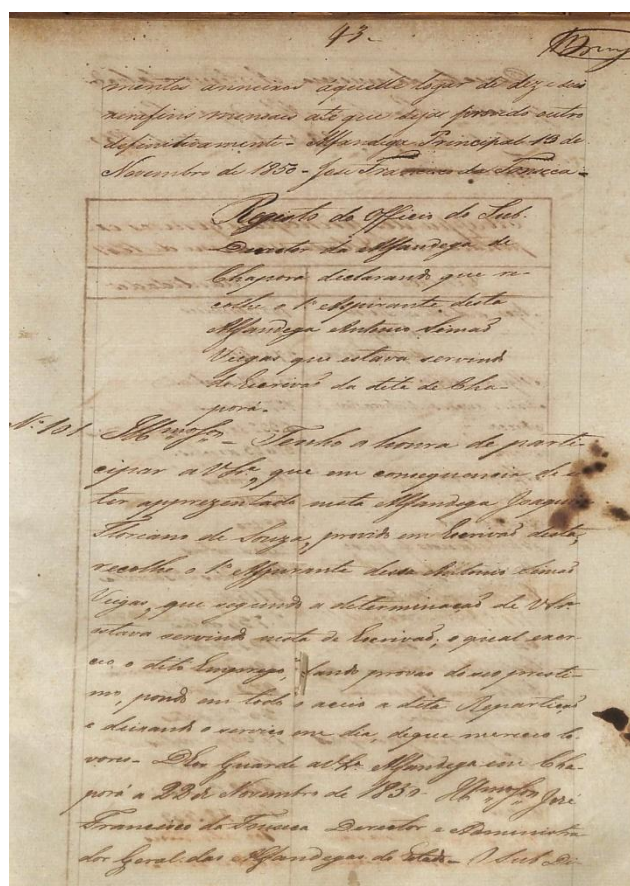 43
mentos annexos aquelle logar de dezeseis
xerafins mensaes até que seja provido outro
definitivamente - Alfandega Principal 13 de
Novembro de 1850 - José Francisco da Fonseca -
Registo do Officio do Sub-
Director da Alfandega de
Chaporá declarando que re-
colhe o 1º Aspirante desta
Alfandega Antonio Simaõ
Viegas que estava servindo
de Escrivaõ da dita de Cha-
porá.
Nº 101 Illmo Snr - Tenho a honra de parti-
cipar a VSa, que em consequencia de
ter apprezentado nesta Alfandega Joaquim
Floriano de Souza, provido em Escrivaõ desta,
recolhe o 1º Aspirante dessa Antonio Simaõ
Viegas, que segundo a determinaçaõ de VSa
estava servindo nesta de Escrivaõ; o qual exer-
ceo o dito Emprego, dando provas do seo presti-
mo, pondo em todo o aceio a dita Repartiçaõ,
e deixando o serviço em dia, de que merece lo-
vores - Ds Guarde a VSa Alfandega em Cha-
porá a 22 de Novembro de 1850 - Illmo Snr José
Francisco da Fonseca Director e Administra
dor Geral das Alfandegas do Estado - O Sub Di-